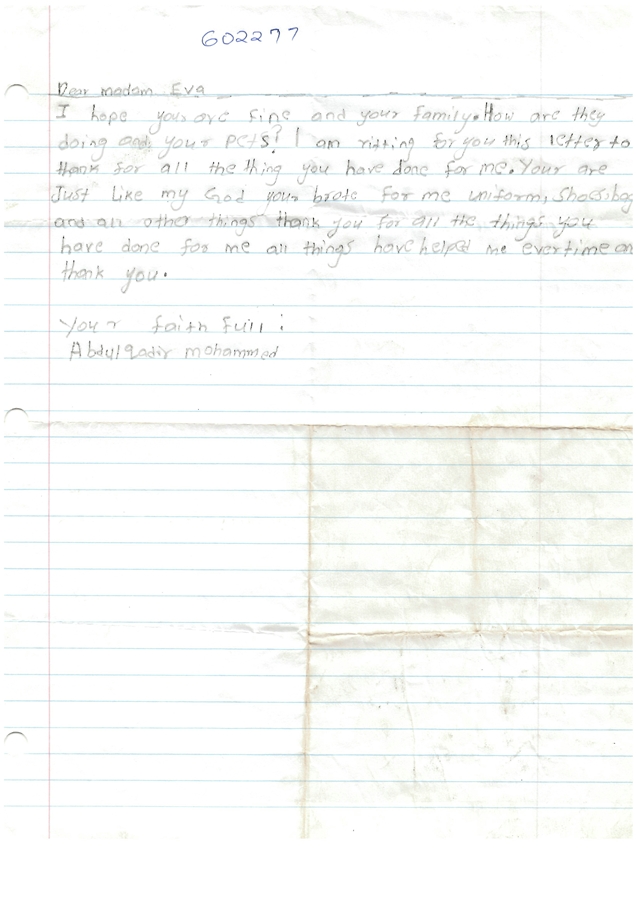 602277
Dear madam Eva
I hope your are fine and your family. How are they
doing and your pets? I am ritting for you this letter to
thank for all the thing you have done for me. Your are
Just like my God your brote for me uniform, Shoes, bag
and all other things thank you for all the things you
have done for me all things have helped me evertime an
thank you.
Your faith full:
Abdulqadir mohammed